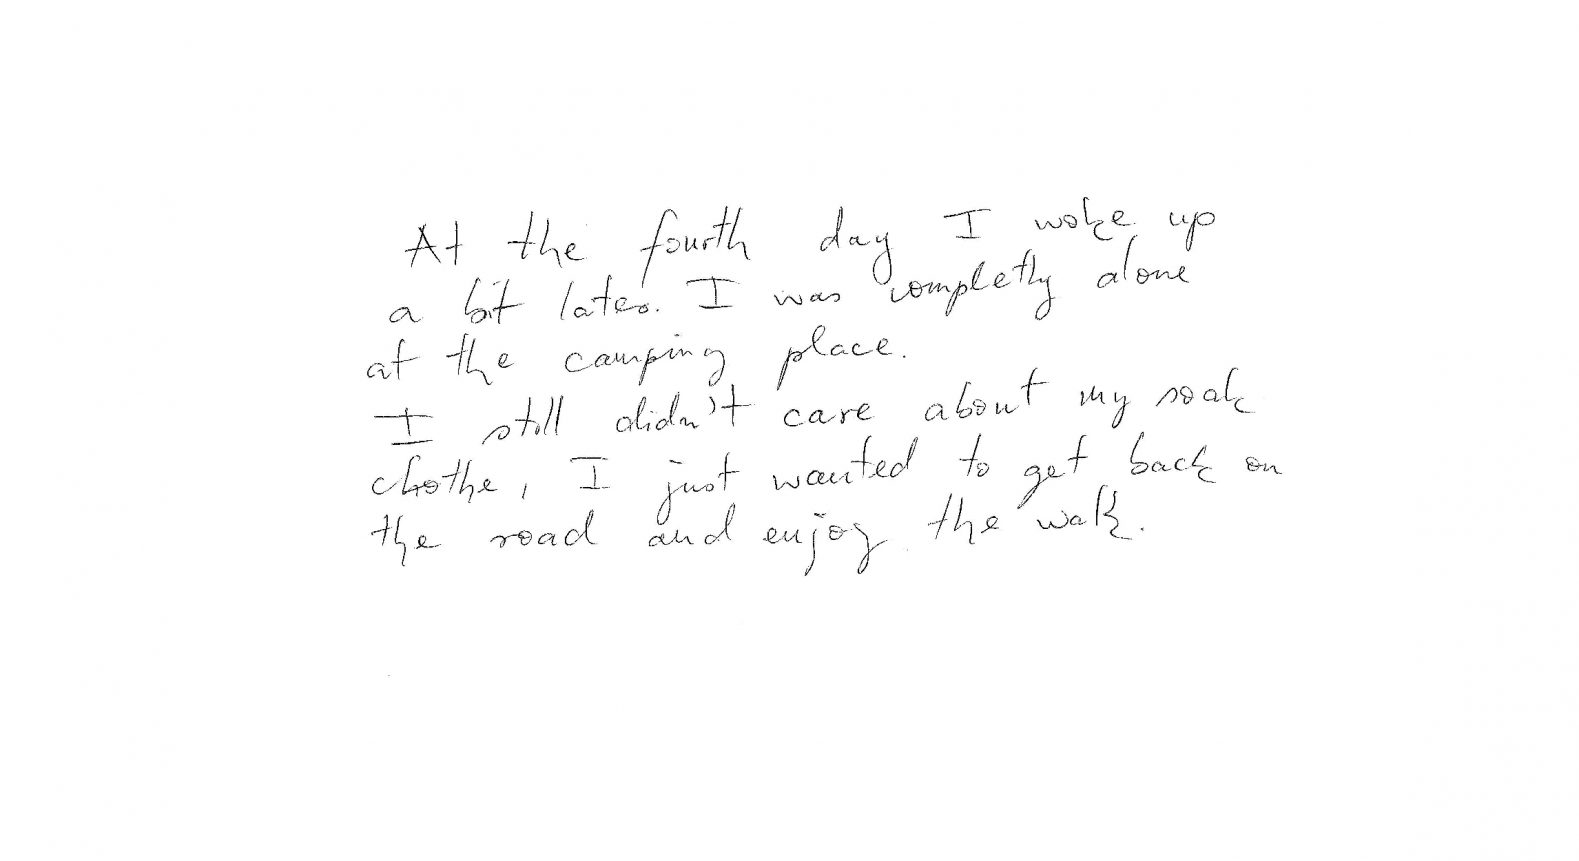 At the fourth day I woke up
a bit later. I was completly alone
at the camping place.
I still didn't care about my soak
clothe, I just wanted to get back on
the road and enjoy the walk.